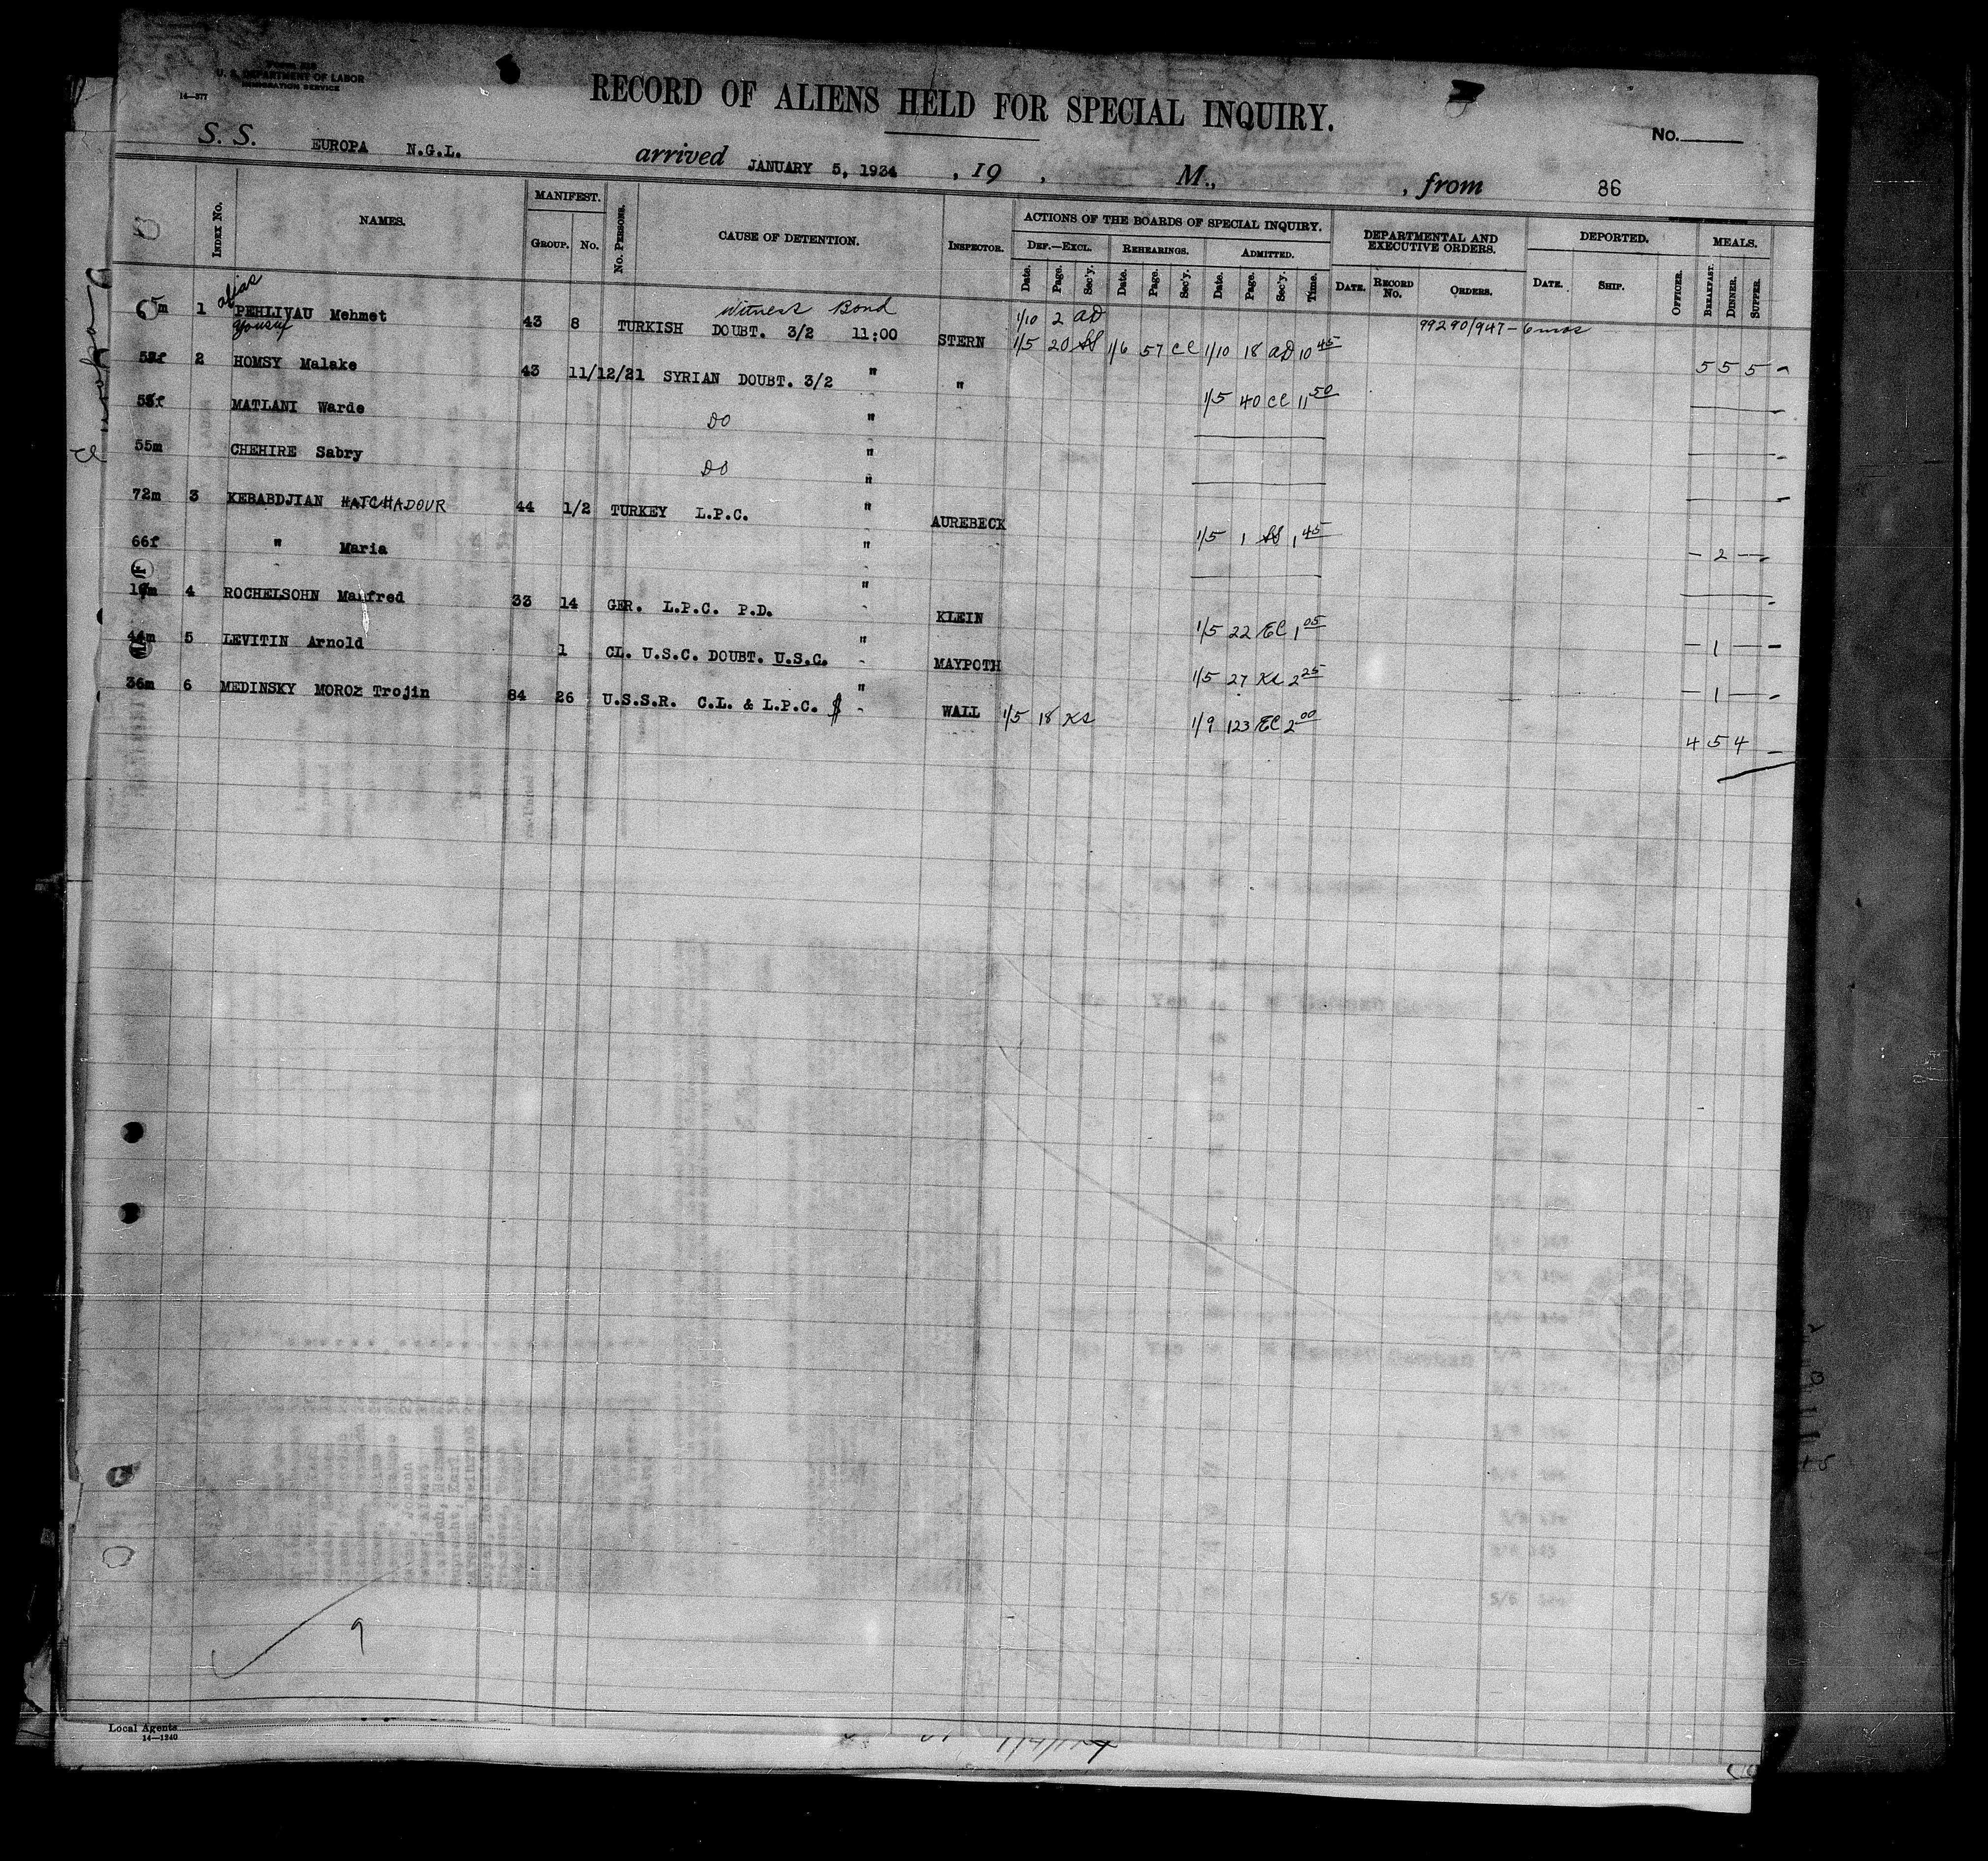 U. S. DEPARTMENT OF LABOR
IMMIGRATION SERVICE
14—377
RECORD OF ALIENS HELD FOR SPECIAL INQUIRY.
No.
S. S. EUROPA N.G.L. arrived JANUARY 5, 1934, 19 , M., , from 86
INDEX No. NAMES. MANIFEST. GROUP. No. No. PERSONS. CAUSE OF DETENTION. INSPECTOR. ACTIONS OF THE BOARDS OF SPECIAL INQUIRY. DEPARTMENTAL AND EXECUTIVE ORDERS. DEPORTED. MEALS.
DEF.—EXCL. REHEARINGS. ADMITTED.
Date. Page. Sec'y. Date. Page. Sec'y. Date. Page. Sec'y. Time. DATE. RECORD No. ORDERS. DATE. SHIP. OFFICER. BREAKFAST. DINNER. SUPPER.
alias Witness Bond 1/10 2 AD 99290/947-6mos
m 1 PEHLIVAU Mehmet 43 8 TURKISH DOUBT. 3/2 11:00 STERN 1/5 20 1/6 57 CC 1/10 18 AD 10 45 5 5 5
Yousuf
f 2 HOMSY Malake 43 11/12/21 SYRIAN DOUBT. 3/2 " " 1/5 40 CC 11 50
f MATLANI Warde DO "
55m CHEHIRE Sabry DO "
72m 3 KEBABDJIAN HATCHADOUR 44 1/2 TURKEY L.P.C. " AUREBECK 1/5 1 1 45 - 2 -
66f " Maria "
F
m 4 ROCHELSOHN Manfred 33 14 GER. L.P.C. P.D. " KLEIN 1/5 22 EC 1 05 - 1 -
44m 5 LEVITIN Arnold 1 CL. U.S.C. DOUBT. U.S.C. " MAYPOTH 1/5 27 KS 2 25 - 1 -
36m 6 MEDINSKY MOROZ Trojin 84 26 U.S.S.R. C.L. & L.P.C. $ " WALL 1/5 18 KS 1/9 123 EC 2 00 4 5 4
Europa
9
Local Agents
14—1240